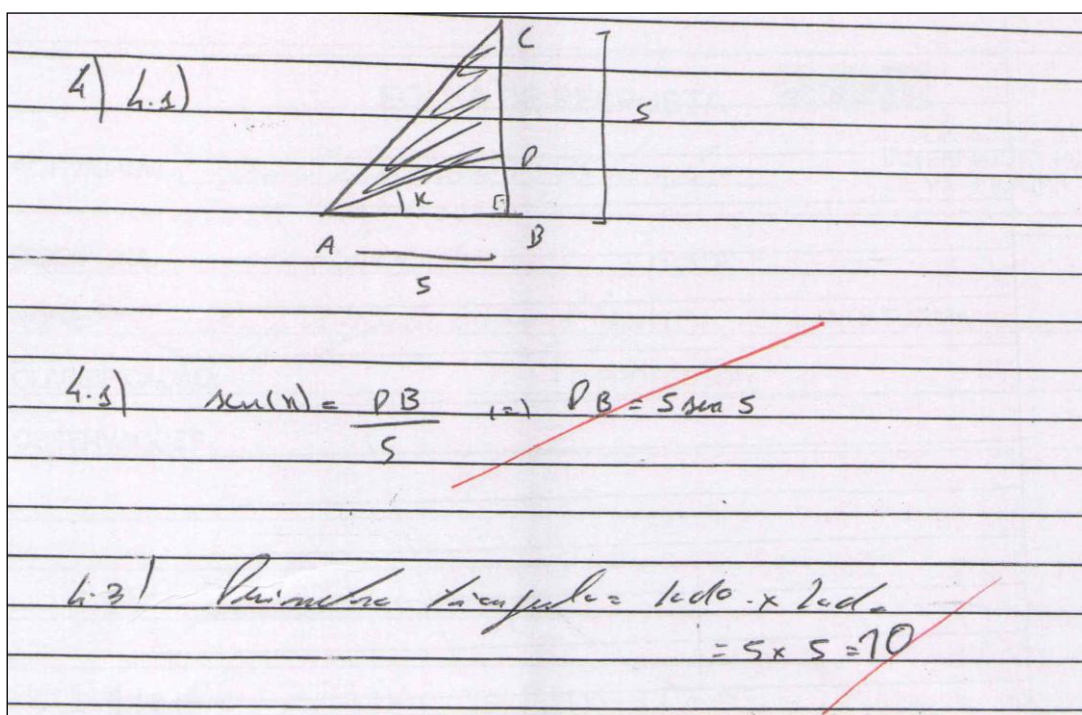 4) 4.1)
C
5
P
x
A
B
5
4.1) sen(x) = PB / 5 (=) PB = 5 sen 5
4.3) Perimetro triangulo = lado x lado
= 5 x 5 = 10